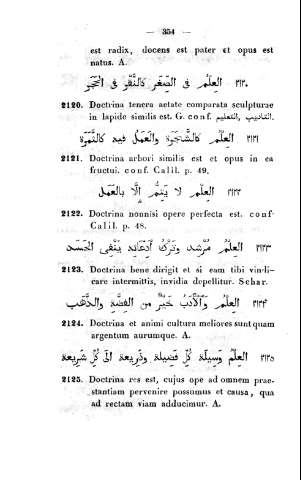 — 354 —
est radix, docens est pater et opus est
natus. A.
٢١٢٠ العِلْمُ فى الصِّغَرِ كالنَّقْرِ فى الحَجَرِ
2120. Doctrina tenera aetate comparata sculpturae
in lapide similis est. G. conf. التعليم, التاديب.
٢١٢١ العِلْمُ كالشَّجَرَةِ والعَمَلُ فيه كالثَّمَرَةِ
2121. Doctrina arbori similis est et opus in ea
fructui. conf. Calil. p. 49.
٢١٢٢ العِلْم لا يَتِمُّ إِلَّا بالعَمَلِ
2122. Doctrina nonnisi opere perfecta est. conf-
Calil. p. 48.
٢١٢٣ العِلْمُ مُرْشِد وتَرْكُ ادِّعَائِه يَنْفِى الحَسَد
2123. Doctrina bene dirigit et si eam tibi vindi-
care intermittis, invidia depellitur. Schar.
٢١٢٤ العِلْمُ والأَدَبُ خَيْرٌ من الفِضَّة والذَّهَب
2124. Doctrina et animi cultura meliores sunt quam
argentum aurumque. A.
٢١٢٥ العِلْمُ وَسِيلَة كُلّ فَضِيلَة وذَرِيعَة الى كُلّ شَرِيعَة
2125. Doctrina res est, cujus ope ad omnem prae-
stantiam pervenire possumus et causa, qua
ad rectam viam adducimur. A.